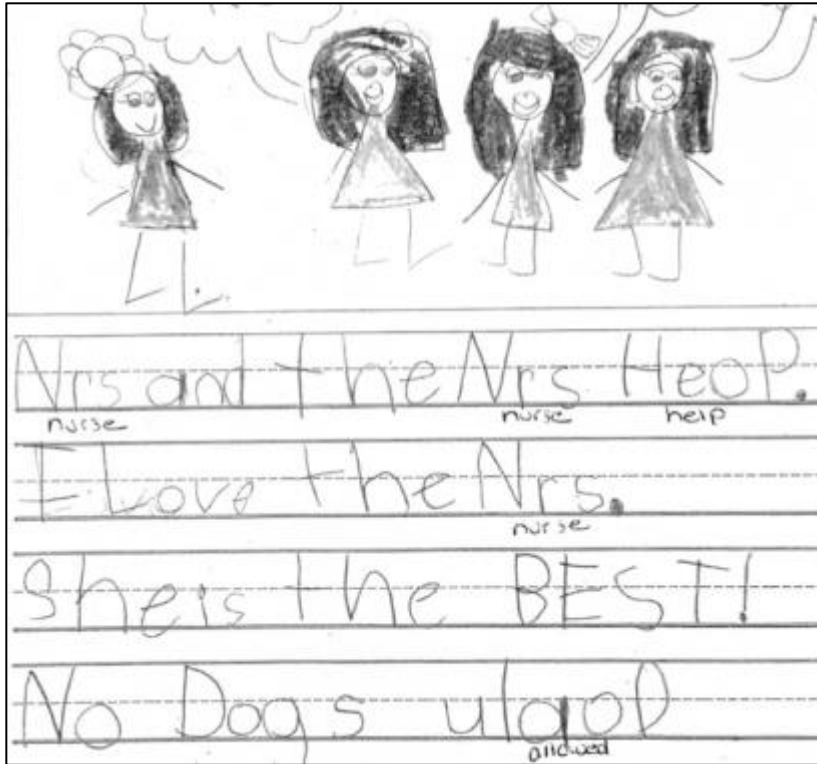 Nrs and the Nrs HeoP.
nurse nurse help
I Love the Nrs.
nurse
She is the BEST!
No Dogs ulaoD
allowed